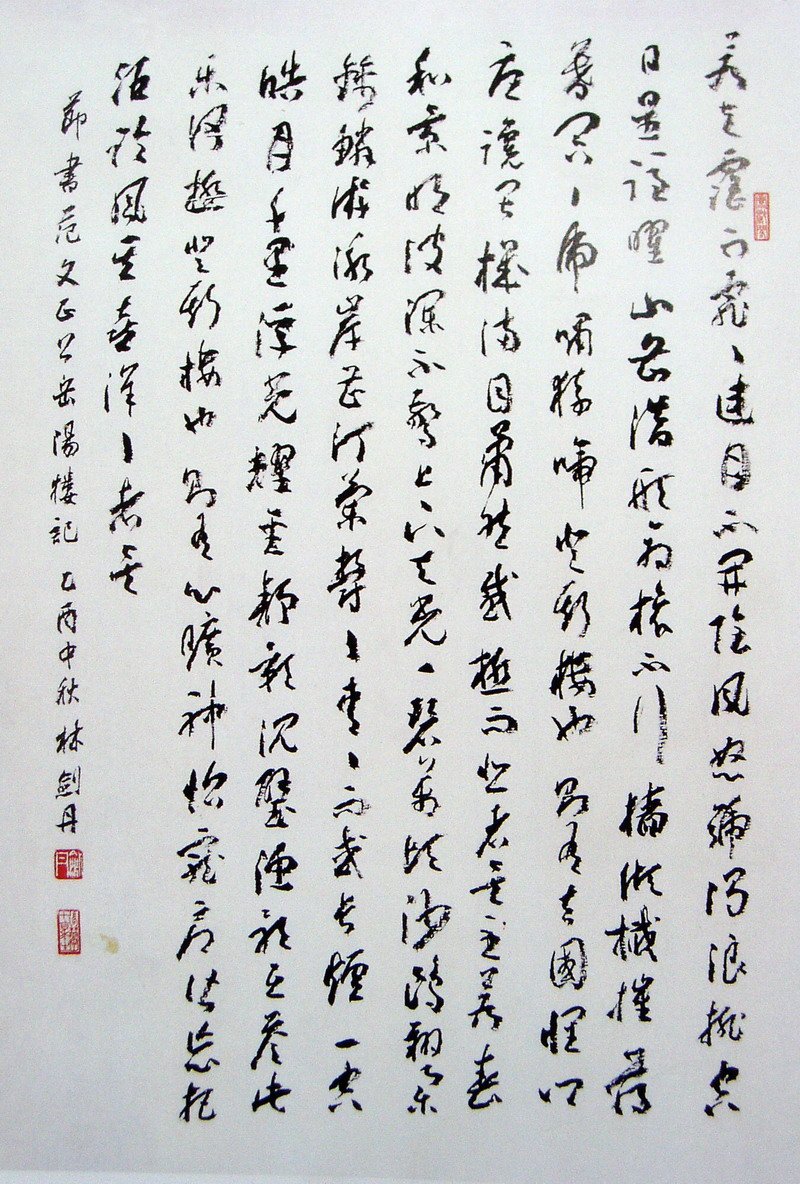 若夫霪雨霏〻連月不開陰風怒號濁浪排空
日星隱曜山岳潛形商旅不行檣傾楫摧薄
暮冥〻虎嘯猿啼登斯樓也則有去國懷鄉
憂讒畏譏滿目蕭然感極而悲者矣至若春
和景明波瀾不驚上下天光一碧萬頃沙鷗翔集
錦鱗游泳岸芷汀蘭郁〻青〻而或長煙一空
皓月千里浮光耀金靜影沉璧漁歌互答此
樂何極登斯樓也則有心曠神怡寵辱偕忘把
酒臨風其喜洋〻者矣
節書范文正公岳陽樓記 乙酉中秋 林劍丹